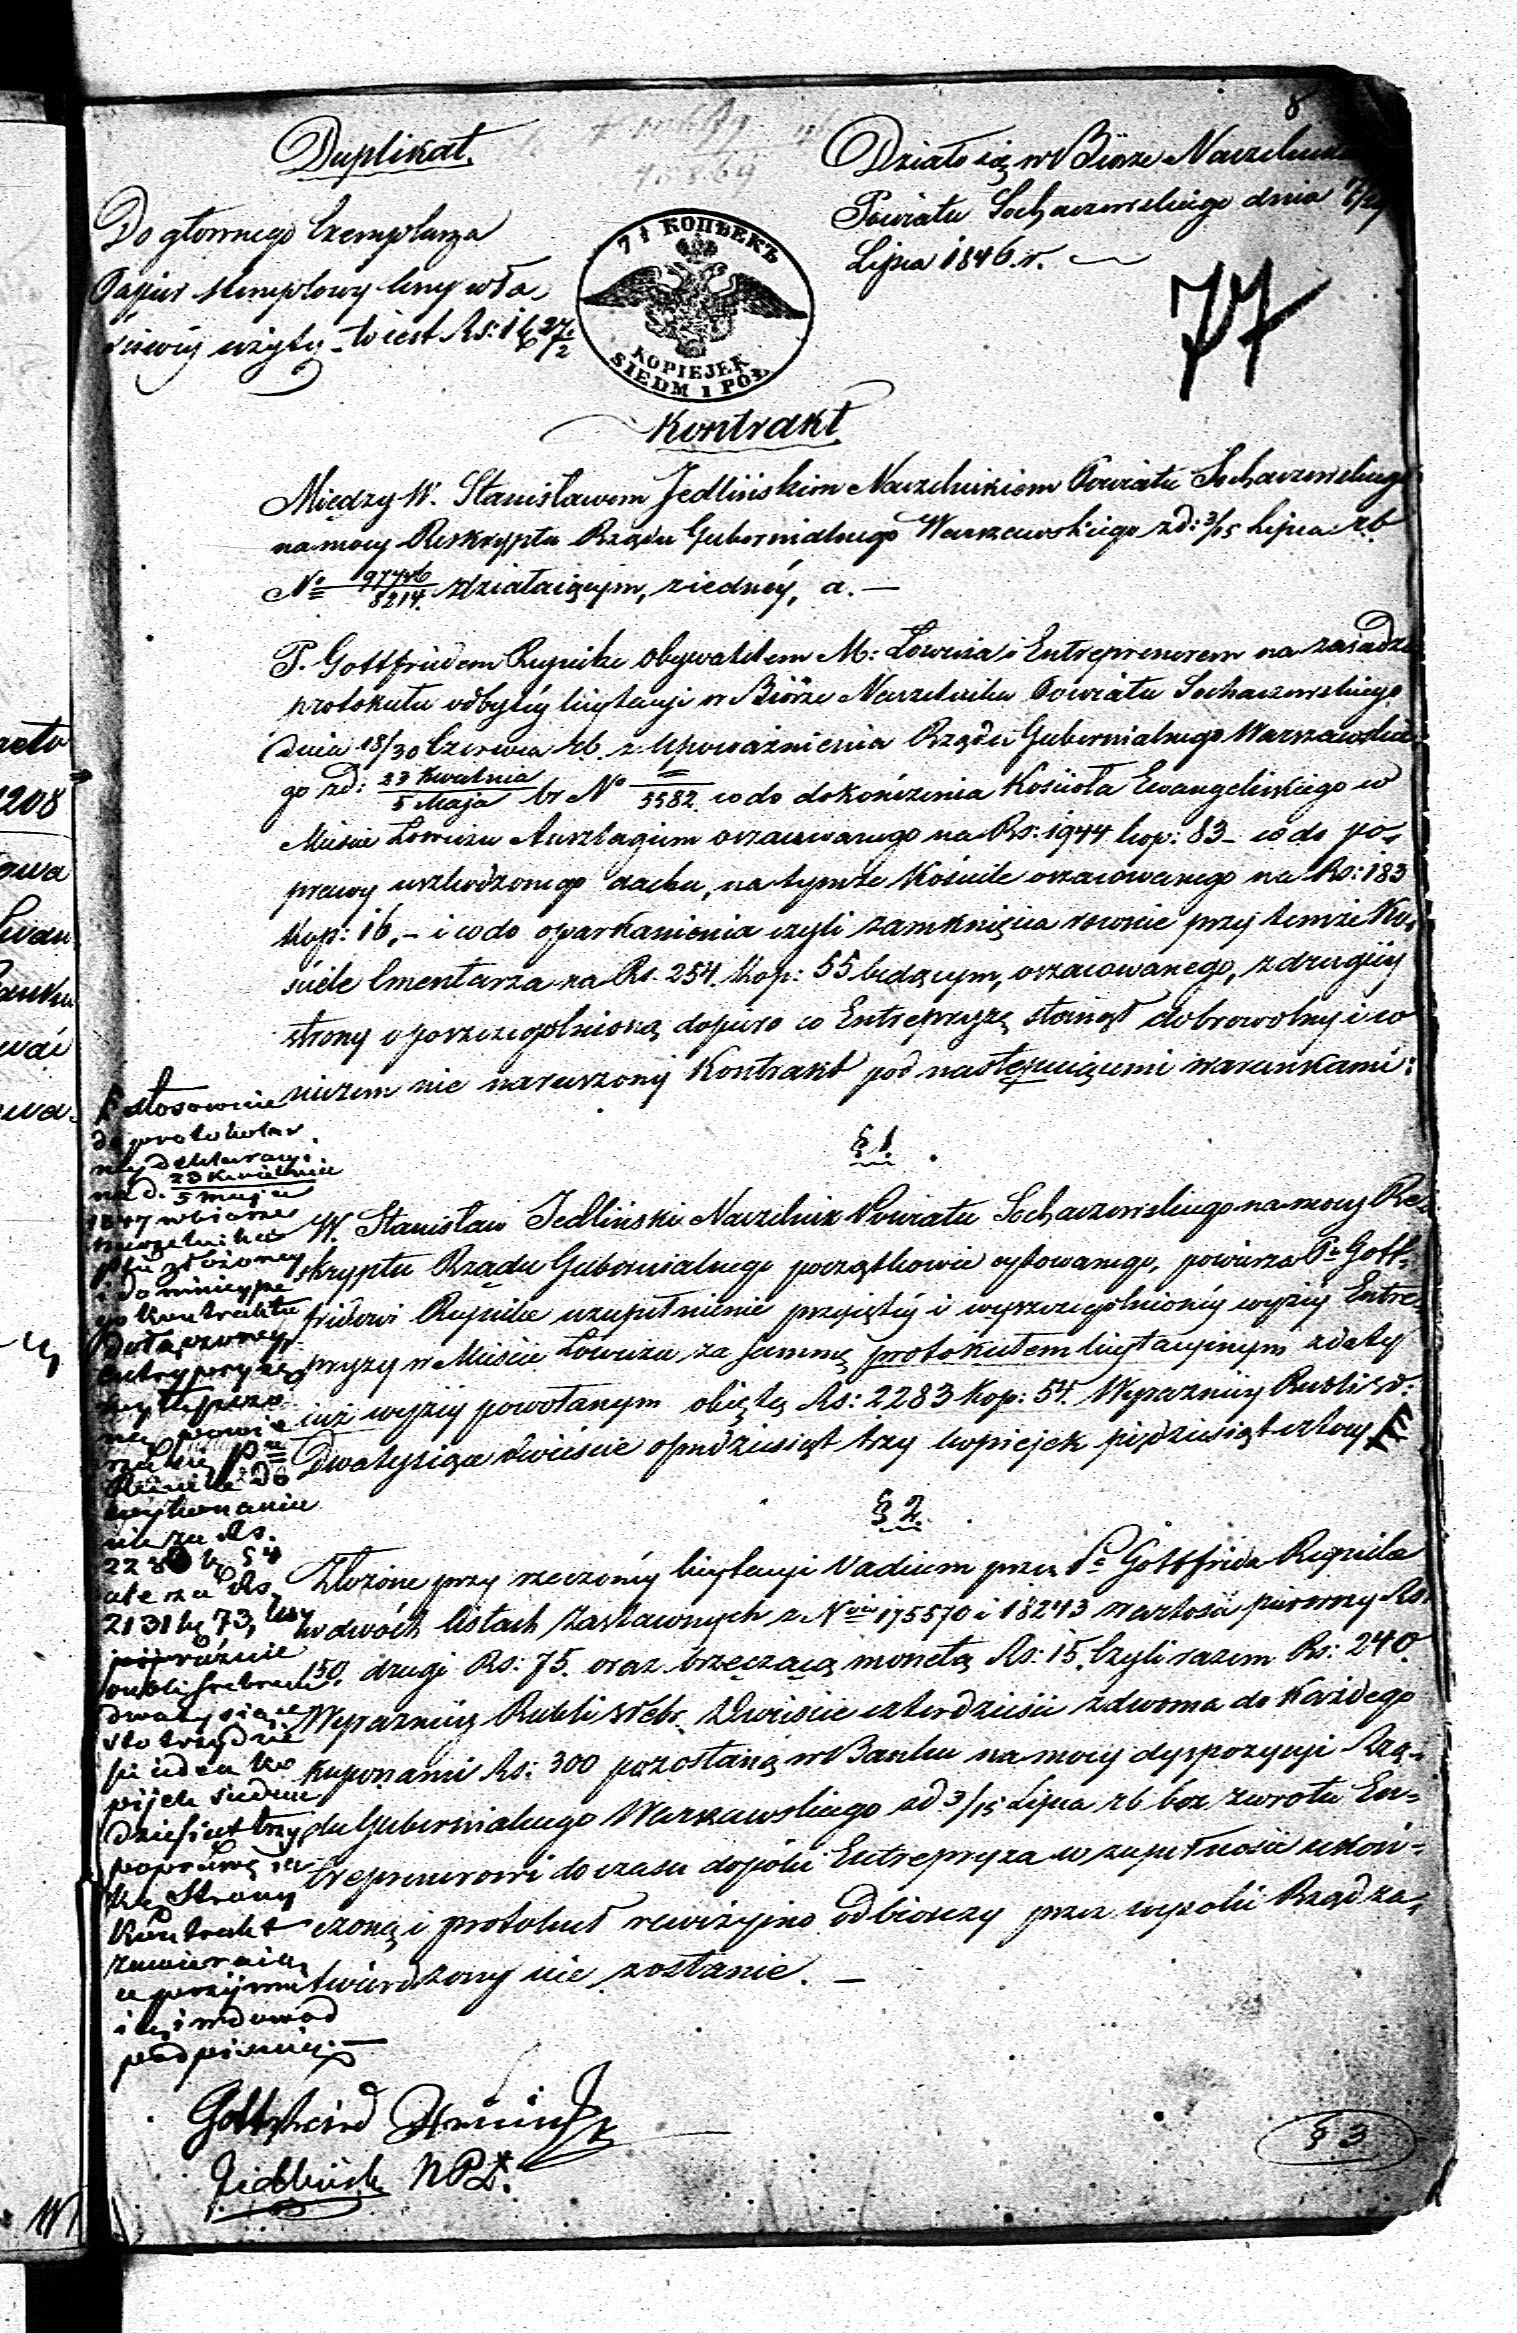 8
Duplikat.
Działo się w Biórze Naczelnika
Powiatu Sochaczewskiego dnia
Lipca 1846 r.
Do głównego Exemplarza
Papier stemplowy ceny wła-
ściwéj użyty - to iest Rs: 1
7½ КОПѢЕКЪ
KOPIEJEK
SIEDM I PÓŁ
77
Kontrakt
Między W. Stanisławem Jedlińskim Naczelnikiem Powiatu Sochaczewskiego
na mocy Reskryptu Rządu Gubernialnego Warszawskiego z d: 3/15 Lipca r.b.
No 8214. działaiącym, z iednéy, a. —
P. Gottfridem Reynike obywatelem M: Łowicza i Entreprenerem na zasadzie
protokułu odbytéy licytacyi w Biórze Naczelnika Powiatu Sochaczewskiego
dnia 18/30 Czerwca r.b. z upoważnienia Rządu Gubernialnego Warszawskie-
go z d: 23 Kwietnia / 5 Maja br No 5582 co do dokończenia Kościoła Ewangelickiego w
Mieście Łowiczu Anszlagiem oszacowanego na Rs: 1944 kop: 83 - co do po-
prawy uszkodzonego dachu, na tymże Kościele oszacowanego na Rs: 183
kop: 16, - i co do oparkanienia czyli zamknięcia rownie przy temże Ko-
ściele Cmentarza na Rs. 254 kop: 55 będącym, oszacowanego, z drugiéy
strony o poszczegolnioną dopiero co Entrepryzę stanął dobrowolny i w
niczem nie naruszony Kontrakt pod następuiącemi warunkami:
§ 1.
W. Stanisław Jedliński Naczelnik Powiatu Sochaczewskiego na mocy Re-
skryptu Rządu Gubernialnego początkowie cytowanego, powierza Pu Gott-
fridowi Reynike uzupełnienie przyiętéy i wyszczególnionéy wyżéy Entre-
pryzy w Mieście Łowiczu za summę protokułem licytacyinym z daty
iuż wyżéy powołanym obiętą Rs: 2283 kop: 54. Wyraźniéy Rubli sr:
Dwatysiące dwieście ośmdziesiąt trzy kopiejek pięćdziesiąt cztery
§ 2.
Złożone przy rzeczonéy licytacyi Vadium przez Pa Gottfrida Reynike
w dwóch listach zastawnych z Nrów 175570 i 18243 wartości pierwszy Rs.
150. drugi Rs: 75. oraz brzęczącą monetą Rs: 15. Czyli razem Rs: 240.
Wyraźniéy Rubli srebr. Dwieście czterdzieści z dwoma do każdego
kuponami Rs: 300 pozostaną w Banku na mocy dyspozycyi Rzą-
du Gubernialnego Warszawskiego z d 3/15 Lipca r b bez zwrotu En-
treprenerowi do czasu dopóki Entrepryza w zupełności ukoń-
czoną i protokuł rewizyjno odbiorczy przez wysoki Rząd za-
twierdzony nie zostanie. —
stosownie
do protokolar
néy deklaracyi
na d. 23 Kwietnia / 5 Maja
1847 w biorze
Naczelnika
Ptu złożoney
i do niniejsze
go Kontraktu
dołączoney
entrepryzę
powie
rza się Pu
Reinike do
wykonania
nie za Rs.
2283 k. 54
ale za Rs.
2131 k. 73, wy
raźnie
rubli srebrem
dwa tysiące
sto trzydzie
ści ieden ko
piiek siedm
dziesiąt trzy,
poprawkę ta
ką Strony
Kontrakt
zawieraiące
przyjmu
ią i na dowod
podpisuią. —
Gottfried Reinike
Jedliński NPt.
§ 3